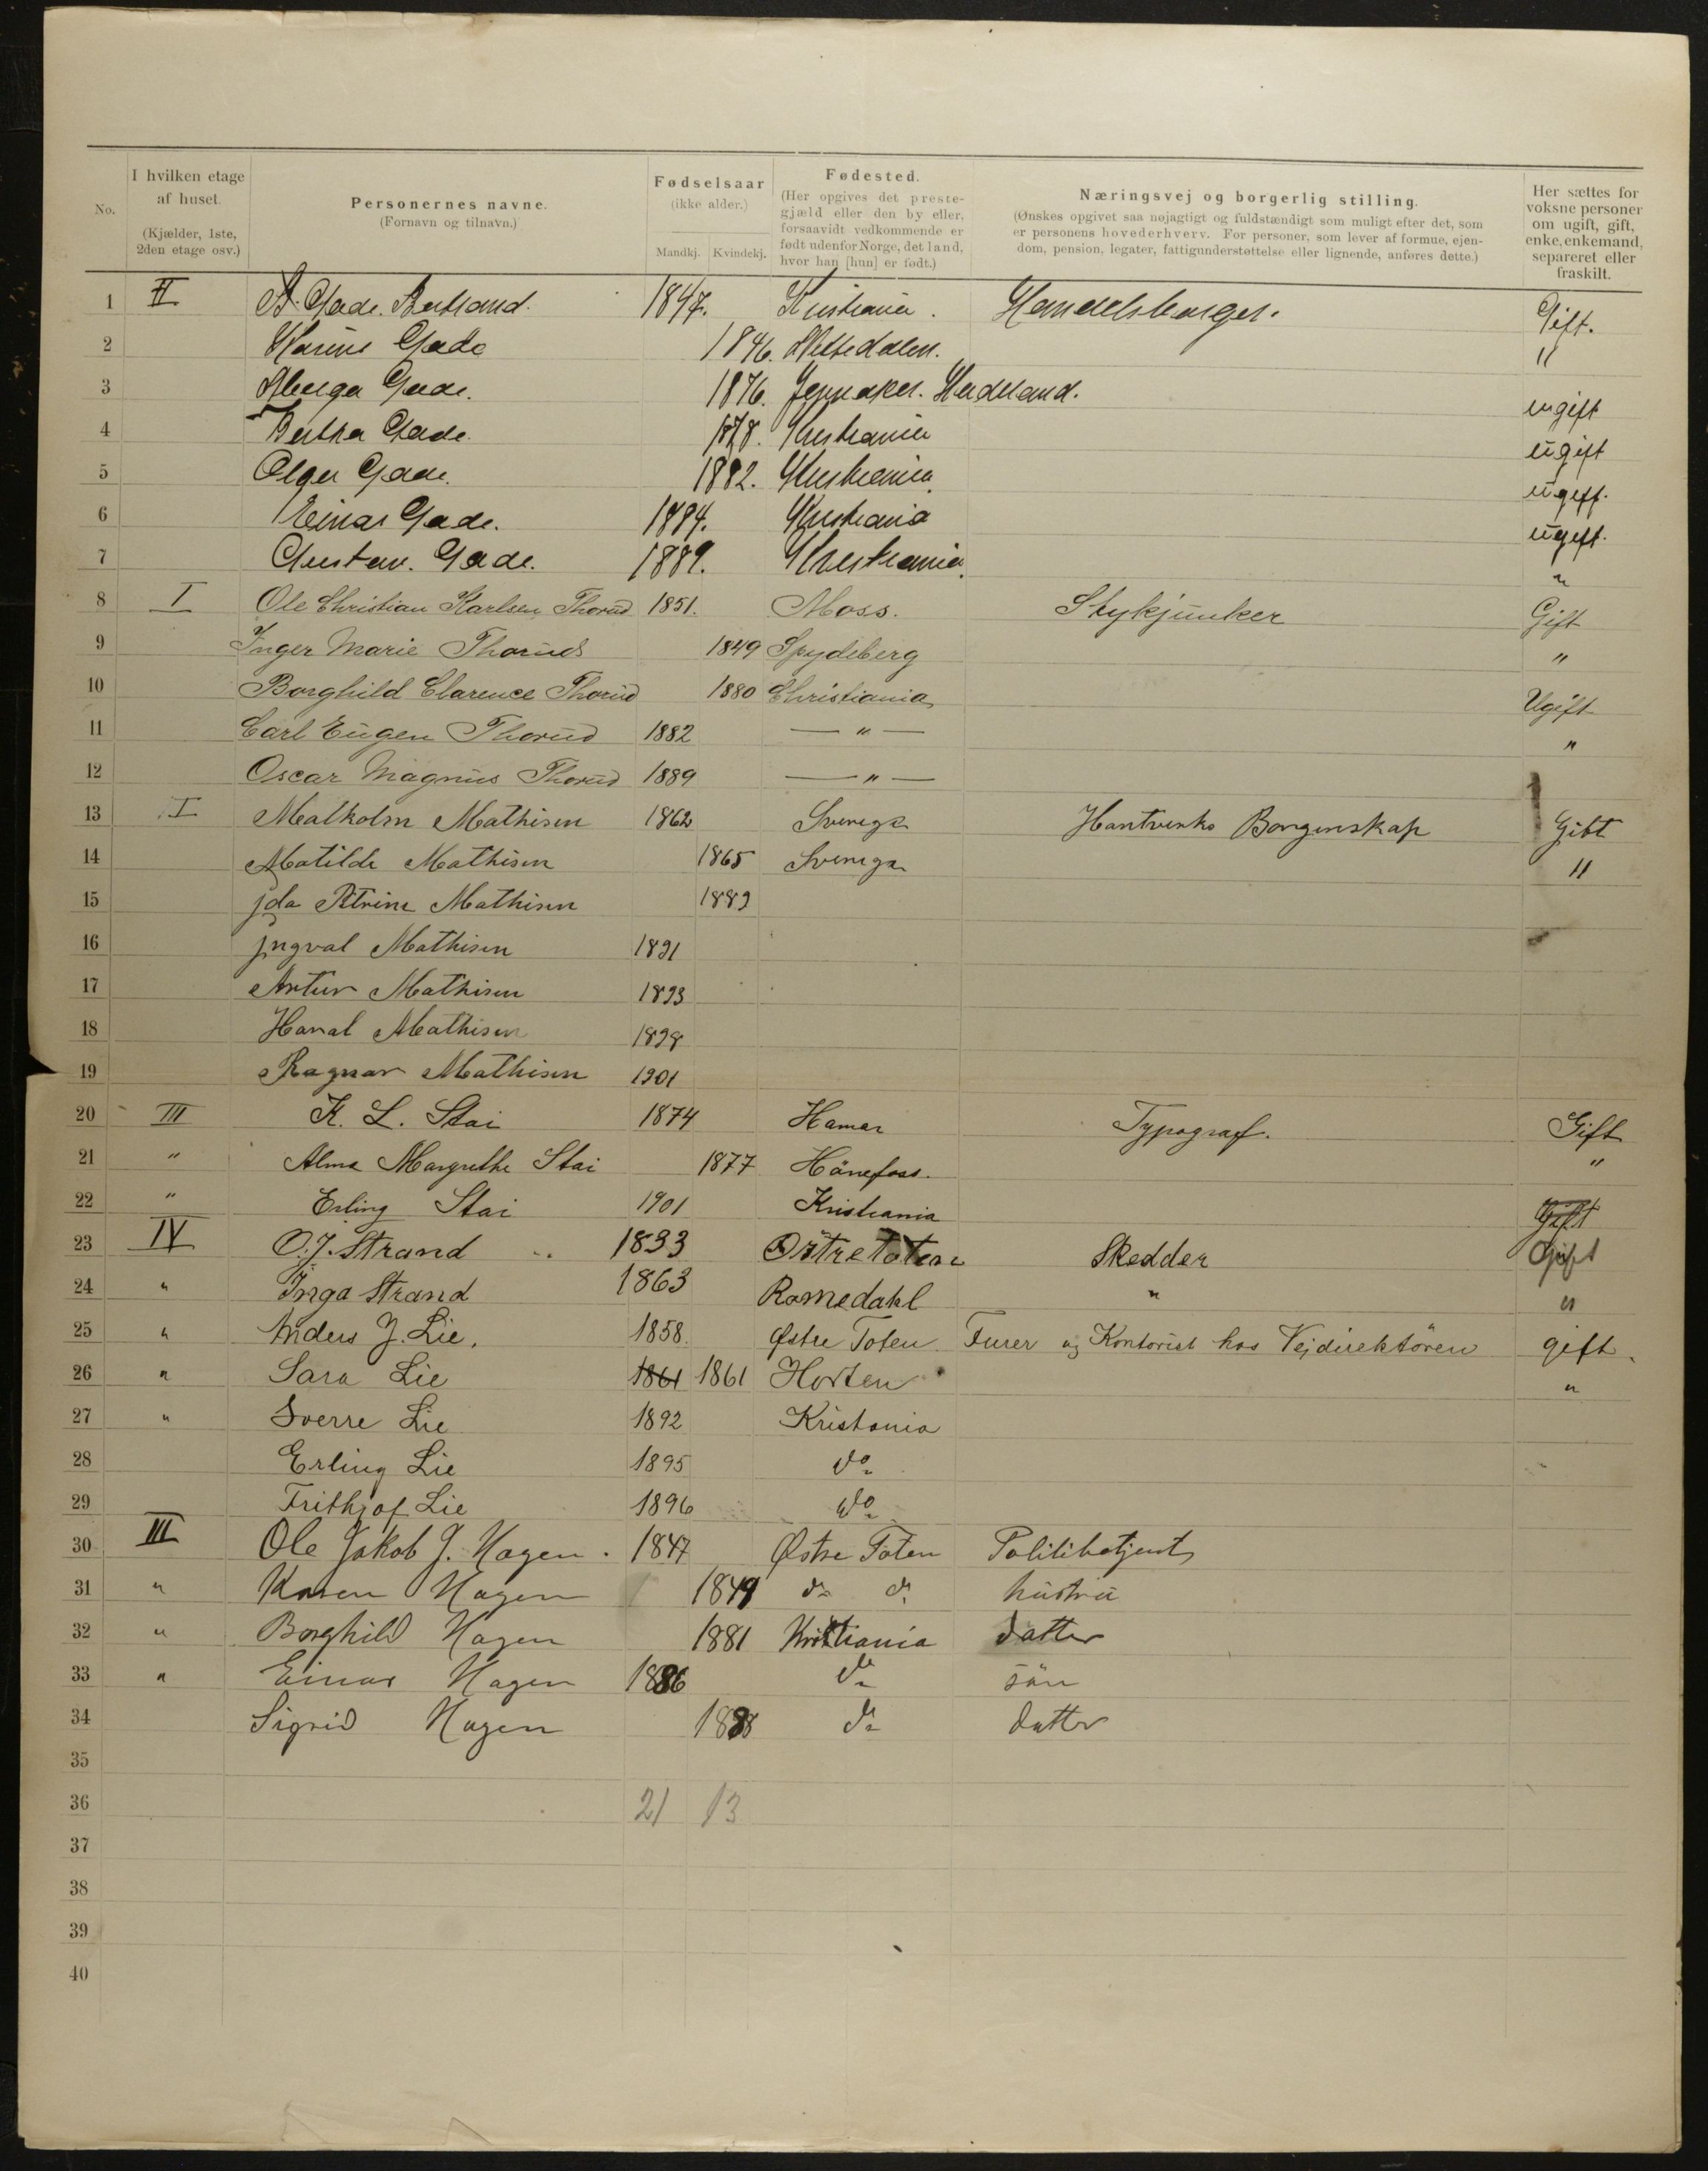 No.
I hvilken etage af huset.
(Kjælder, 1ste, 2den etage osv.)
Personernes navne.
(Fornavn og tilnavn.)
Fødselsaar
(ikke alder.)
Mandkj. Kvindekj.
Fødested.
(Her opgives det preste-
gjæld eller den by eller,
forsaavidt vedkommende er
født udenfor Norge, det land,
hvor han [hun] er født.)
Næringsvej og borgerlig stilling.
(Ønskes opgivet saa nøjagtigt og fuldstændigt som muligt efter det, som
er personens hovederhverv. For personer, som lever af formue, ejen-
dom, pension, legater, fattigunderstøttelse eller lignende, anføres dette.)
Her sættes for
voksne personer
om ugift, gift,
enke, enkemand,
separeret eller
fraskilt.
1 II Gade 1847. Kristiania. Handelsborger. Gift.
2 Gade 1846. "
3 Gade. 1876. Jevnaker. Hadeland. ugift
4 Bertha Gade. 1878. Kristiania ugift
5 Olga Gade. 1882. Kristiania ugift.
6 Einar Gade. 1884. Kristiania ugift.
7 Gustav. Gade. 1889. Kristiania "
8 I Ole Christian Karlsen Thorud 1851. Moss. Stykjunker Gift
9 Inger Marie Thorud 1849 Spydeberg "
10 Borghild Clarence Thorud 1880 Christiania Ugift
11 Carl Eugen Thorud 1882 — " — "
12 Oscar Magnus Thorud 1889 — " —
13 I Malkolm Mathisen 1862 Sverige Hantverks Borgenskap Gift
14 Matilde Mathisen 1865 Sverige "
15 jda Petrine Mathisen 1889
16 jngval Mathisen 1891
17 Artur Mathisen 1893
18 Mathisen 1898
19 Ragnar Mathisen 1901
20 III K. L. Stai 1874 Hamar Typograf. Gift
21 " Alma Margrethe Stai 1877 Hönefoss. "
22 " Erling Stai 1901 Kristiania Gift
23 IV O. J. Strand 1833 Östre Toten Skedder Gift
24 " Inga Strand 1863 Romedahl " "
25 " Anders J. Lie. 1858. Østre Toten Furer og Kontorist hos Vejdirektören gift.
26 " Sara Lie 1861 1861 Horten "
27 " Sverre Lie 1892 Kristania
28 Erling Lie 1895 do
29 Frithjof Lie 1896 do
30 III Ole Jakob J. Hagen. 1847 Østre Toten Politibetjent
31 " Karen Hagen 1849 do do hustru
32 " Borghild Hagen 1881 Kristiania datter
33 " Einar Hagen 1886 do sön
34 Sigrid Hagen 1888 do datter
35
36 21 13
37
38
39
40